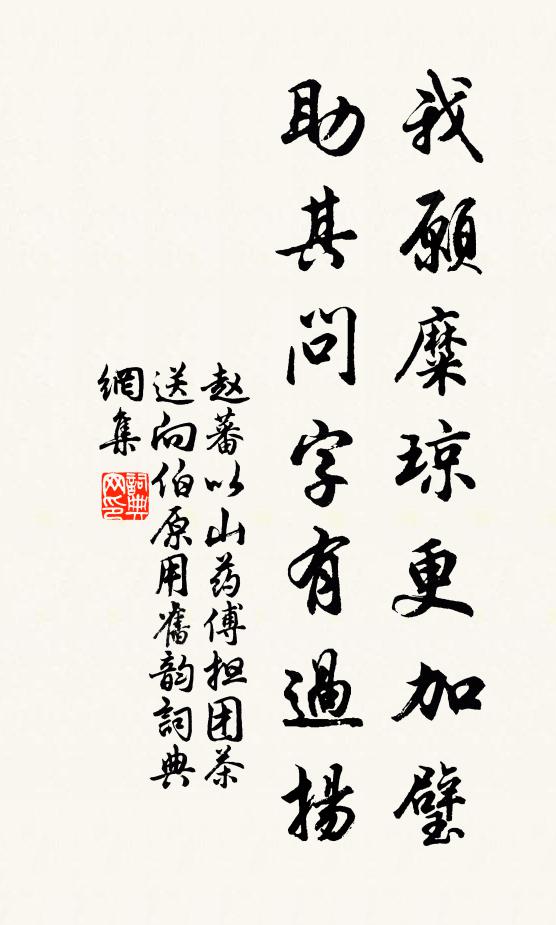 我願糜琼更加璧
助其問字有過揚
赵蕃以山药傅担团茶
送向伯原用舊韵詞典
網集
詞典
网印